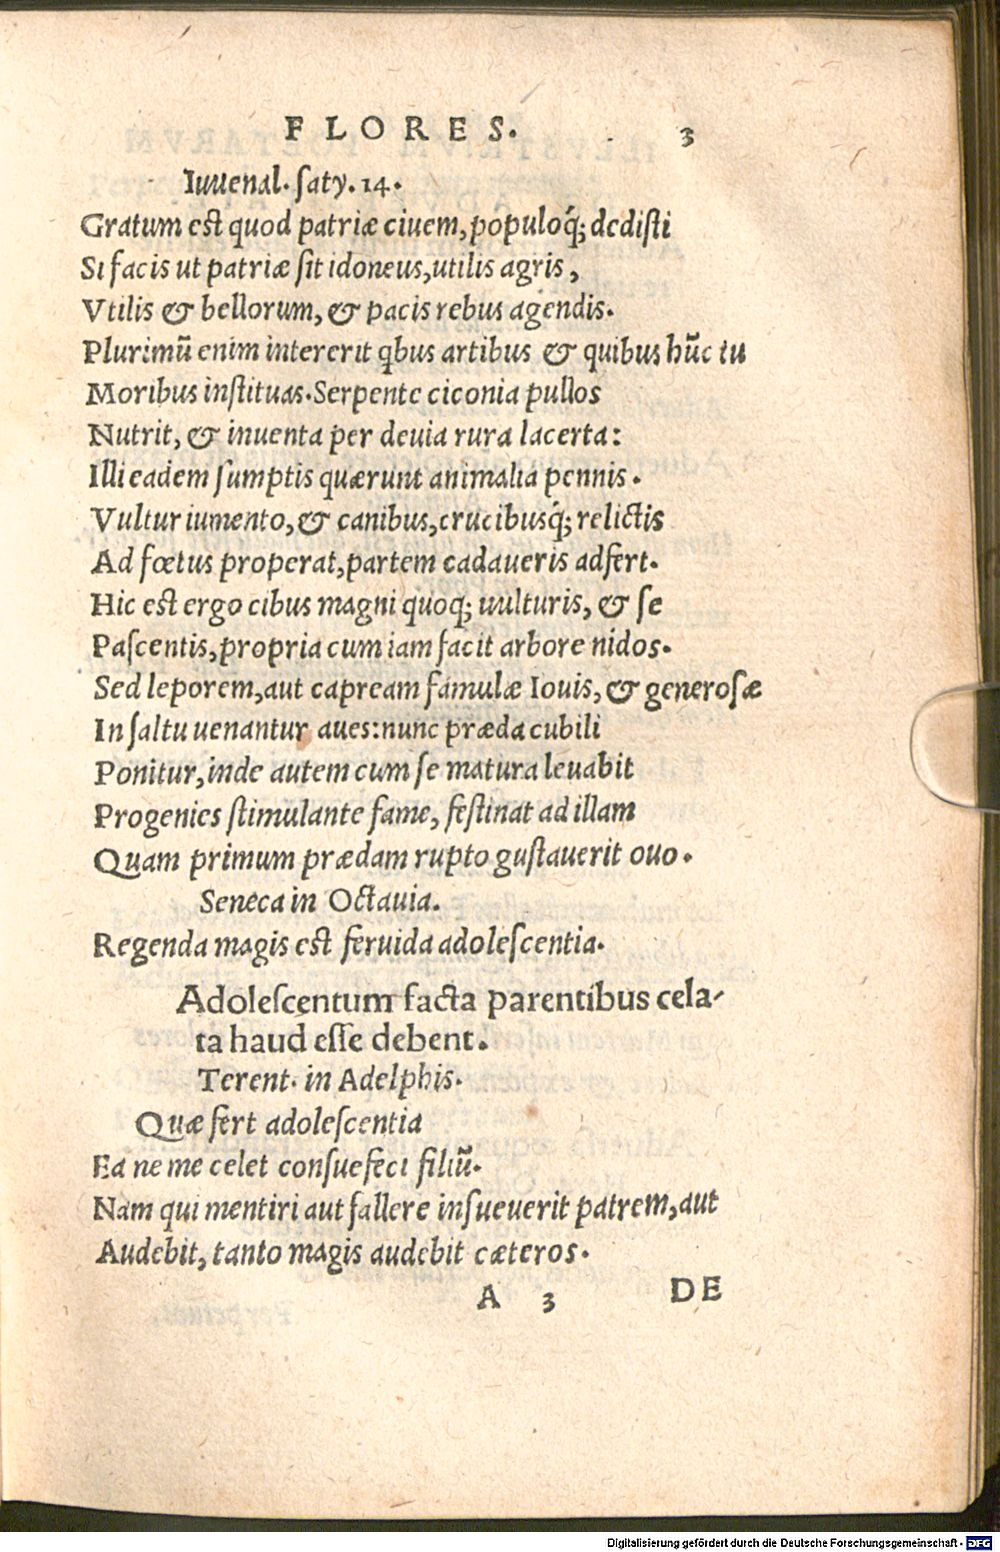 FLORES. 3
Iuuenal. ſaty. 14.
Gratum est quod patriæ ciuem, populoq́; dediſti
Si facis ut patriæ ſit idoneus, utilis agris,
Vtilis & bellorum, & pacis rebus agendis.
Plurimũ enim intererit qbus artibus & quibus hũc tu
Moribus inſtituas. Serpente ciconia pullos
Nutrit, & inuenta per deuia rura lacerta:
Illi eadem ſumptis quærunt animalia pennis.
Vultur iumento, & canibus, crucibusq́; relictis
Ad fœtus properat, partem cadaueris adfert.
Hic est ergo cibus magni quoq; uulturis, & ſe
Paſcentis, propria cum iam facit arbore nidos.
Sed leporem, aut capream famulæ Iouis, & generoſæ
In ſaltu uenantur aues: nunc præda cubili
Ponitur, inde autem cum ſe matura leuabit
Progenies ſtimulante fame, feſtinat ad illam
Quam primum prædam rupto guſtauerit ouo.
Seneca in Octauia.
Regenda magis est feruida adoleſcentia.
Adoleſcentum facta parentibus cela-
ta haud eſſe debent.
Terent. in Adelphis.
Quæ fert adoleſcentia
Ea ne me celet conſuefeci filiũ.
Nam qui mentiri aut fallere inſueuerit patrem, aut
Audebit, tanto magis audebit cæteros.
A 3 DE
Digitalisierung gefördert durch die Deutsche Forschungsgemeinschaft - DFG